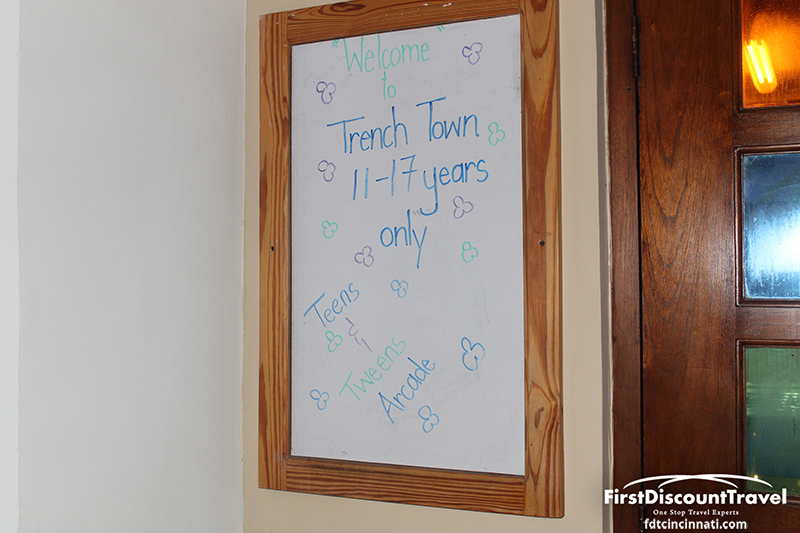 "Welcome"
to
Trench Town
11-17 years
only
Teens
&
Tweens
Arcade
FirstDiscountTravel
One Stop Travel Experts
fdtcincinnati.com